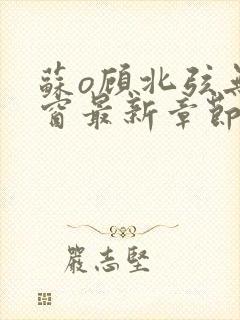 蘇o顾北弦無
窗最新章節
嚴志堅